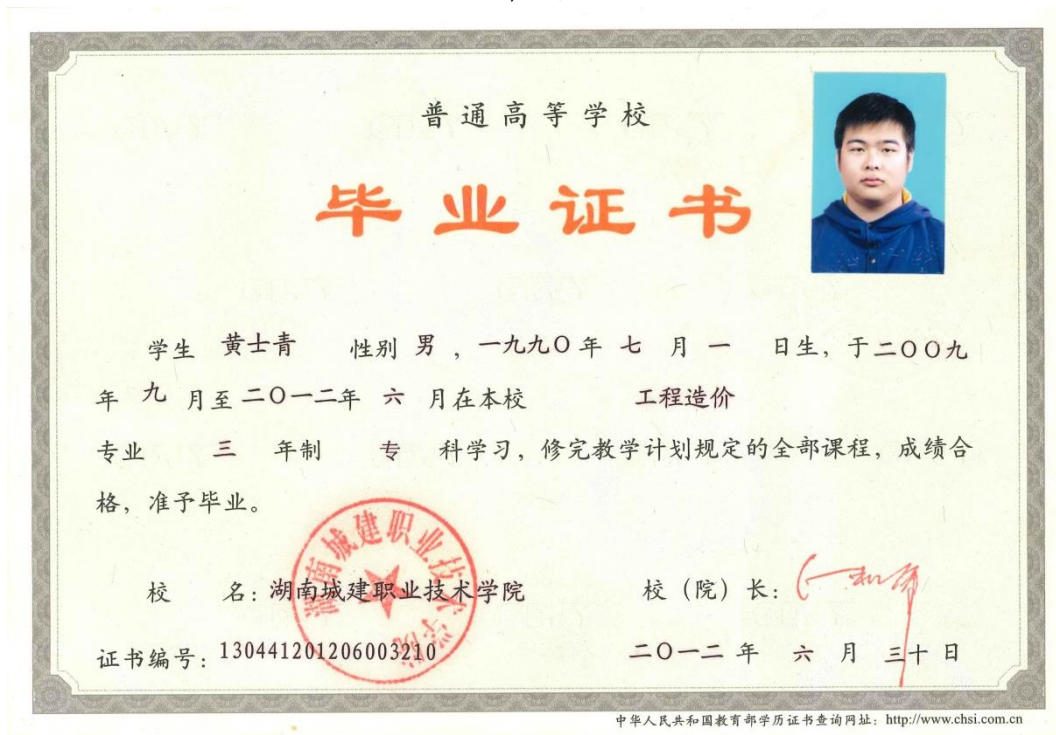 普通高等学校
毕业证书
学生 黄士青 性别 男 ，一九九〇年 七 月 一 日生，于二〇〇九
年 九 月至二〇一二年 六 月在本校 工程造价
专业 三 年制 专 科学习，修完教学计划规定的全部课程，成绩合
格，准予毕业。
湖南城建职业技术学院
校 名：湖南城建职业技术学院 校（院）长：
证书编号：130441201206003210 二〇一二年 六 月 三十日
中华人民共和国教育部学历证书查询网址：http://www.chsi.com.cn